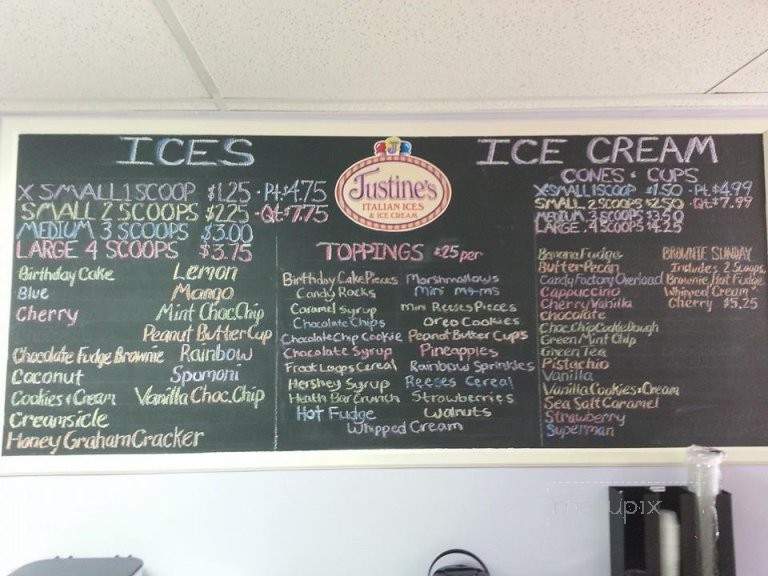 ICES
X SMALL 1 SCOOP $1.25 · Pt. $4.75
SMALL 2 SCOOPS $2.25 · Qt. $7.75
MEDIUM 3 SCOOPS $3.00
LARGE 4 SCOOPS $3.75
Birthday Cake
Blue
Cherry
Chocolate Fudge Brownie
Coconut
Cookies & Cream
Creamsicle
Honey Graham Cracker
Lemon
Mango
Mint Choc. Chip
Peanut Butter Cup
Rainbow
Spumoni
Vanilla Choc. Chip
Justine's
ITALIAN ICES
& ICE CREAM
TOPPINGS $.25 per
Birthday Cake Pieces
Candy Rocks
Caramel Syrup
Chocolate Chips
Chocolate Chip Cookie
Chocolate Syrup
Froot Loops Cereal
Hershey Syrup
Heath Bar Crunch
Hot Fudge
Marshmallows
Mini M+ms
mini Reeses Pieces
Oreo Cookies
Peanut Butter Cups
Pineapples
Rainbow Sprinkles
Reeses Cereal
Strawberries
Walnuts
Whipped Cream
ICE CREAM
CONES & CUPS
X-SMALL 1 SCOOP $1.50 · Pt. $4.99
SMALL 2 SCOOPS $2.50 · Qt. $7.99
MEDIUM 3 SCOOPS $3.50
LARGE 4 SCOOPS $4.25
Banana Fudge
Butter Pecan
Candy Factory Overload
Cappuccino
Cherry Vanilla
Chocolate
Choc. Chip Cookie Dough
Green Mint Chip
Green Tea
Pistachio
Vanilla
Vanilla Cookies & Cream
Sea Salt Caramel
Strawberry
Superman
BROWNIE SUNDAY
Includes 2 Scoops,
Brownie, Hot Fudge
Whipped Cream
Cherry $5.25
menupix